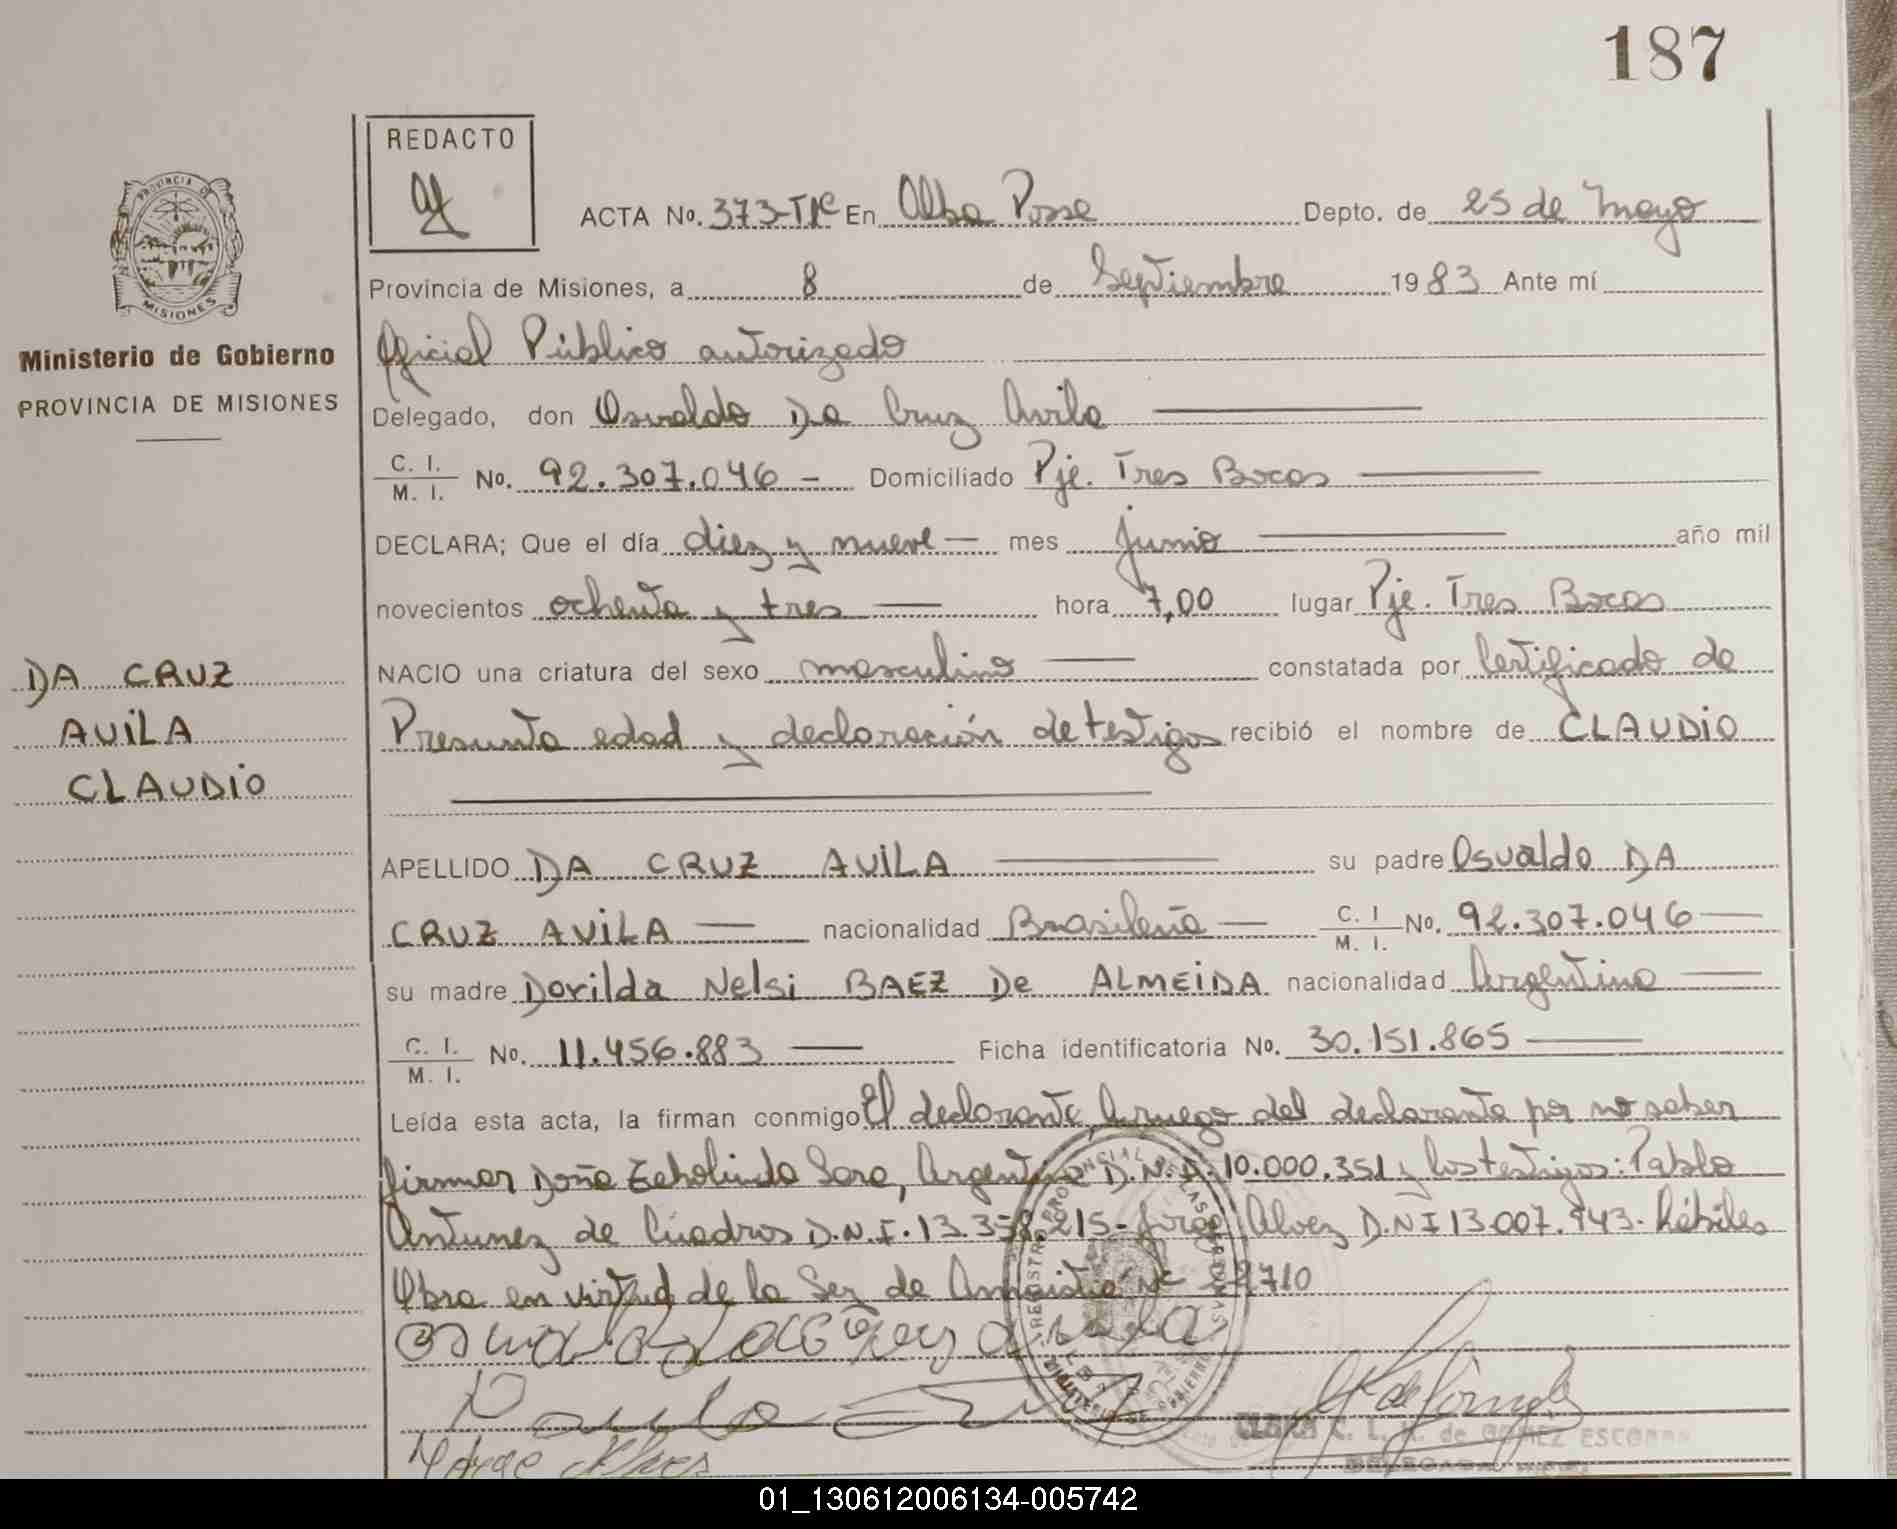 187
REDACTO
ACTA No. 373-TIC En Alba Posse Depto. de 25 de Mayo
PROVINCIA DE MISIONES
Provincia de Misiones, a 8 de Septiembre 1983 Ante mí
Ministerio de Gobierno
PROVINCIA DE MISIONES
Oficial Público autorizado
Delegado, don Osvaldo Da Cruz Avila
C. I. / M. I. No. 92.307.046 - Domiciliado Pje. Tres Bocas
DECLARA; Que el día diez y nueve mes junio año mil
novecientos ochenta y tres hora 7,00 lugar Pje. Tres Bocas
NACIO una criatura del sexo masculino constatada por Certificado de
Presunta edad y declaración de testigos recibió el nombre de CLAUDIO
DA CRUZ
AVILA
CLAUDIO
APELLIDO DA CRUZ AVILA su padre Osvaldo DA
CRUZ AVILA nacionalidad Brasileña C. I / M. I. No. 92.307.046
su madre Dorilda Nelsi BAEZ De ALMEIDA nacionalidad Argentina
C. I. / M. I. No. 11.456.883 Ficha identificatoria No. 30.151.865
Leída esta acta, la firman conmigo El declarante, A ruego del declarante por no saber
firmar Doña Sara, Argentina D.N.I. 10.000.351 y los testigos: Pablo
Antunez de Cuadros D.N.I. 13.358.215- Jorge Alvez D.N I 13.007.943- hábiles
Obra en virtud de la Ley de Amnistía Nº
Jorge Alves
C. L. de GOMEZ ESCOBAR
01_130612006134-005742